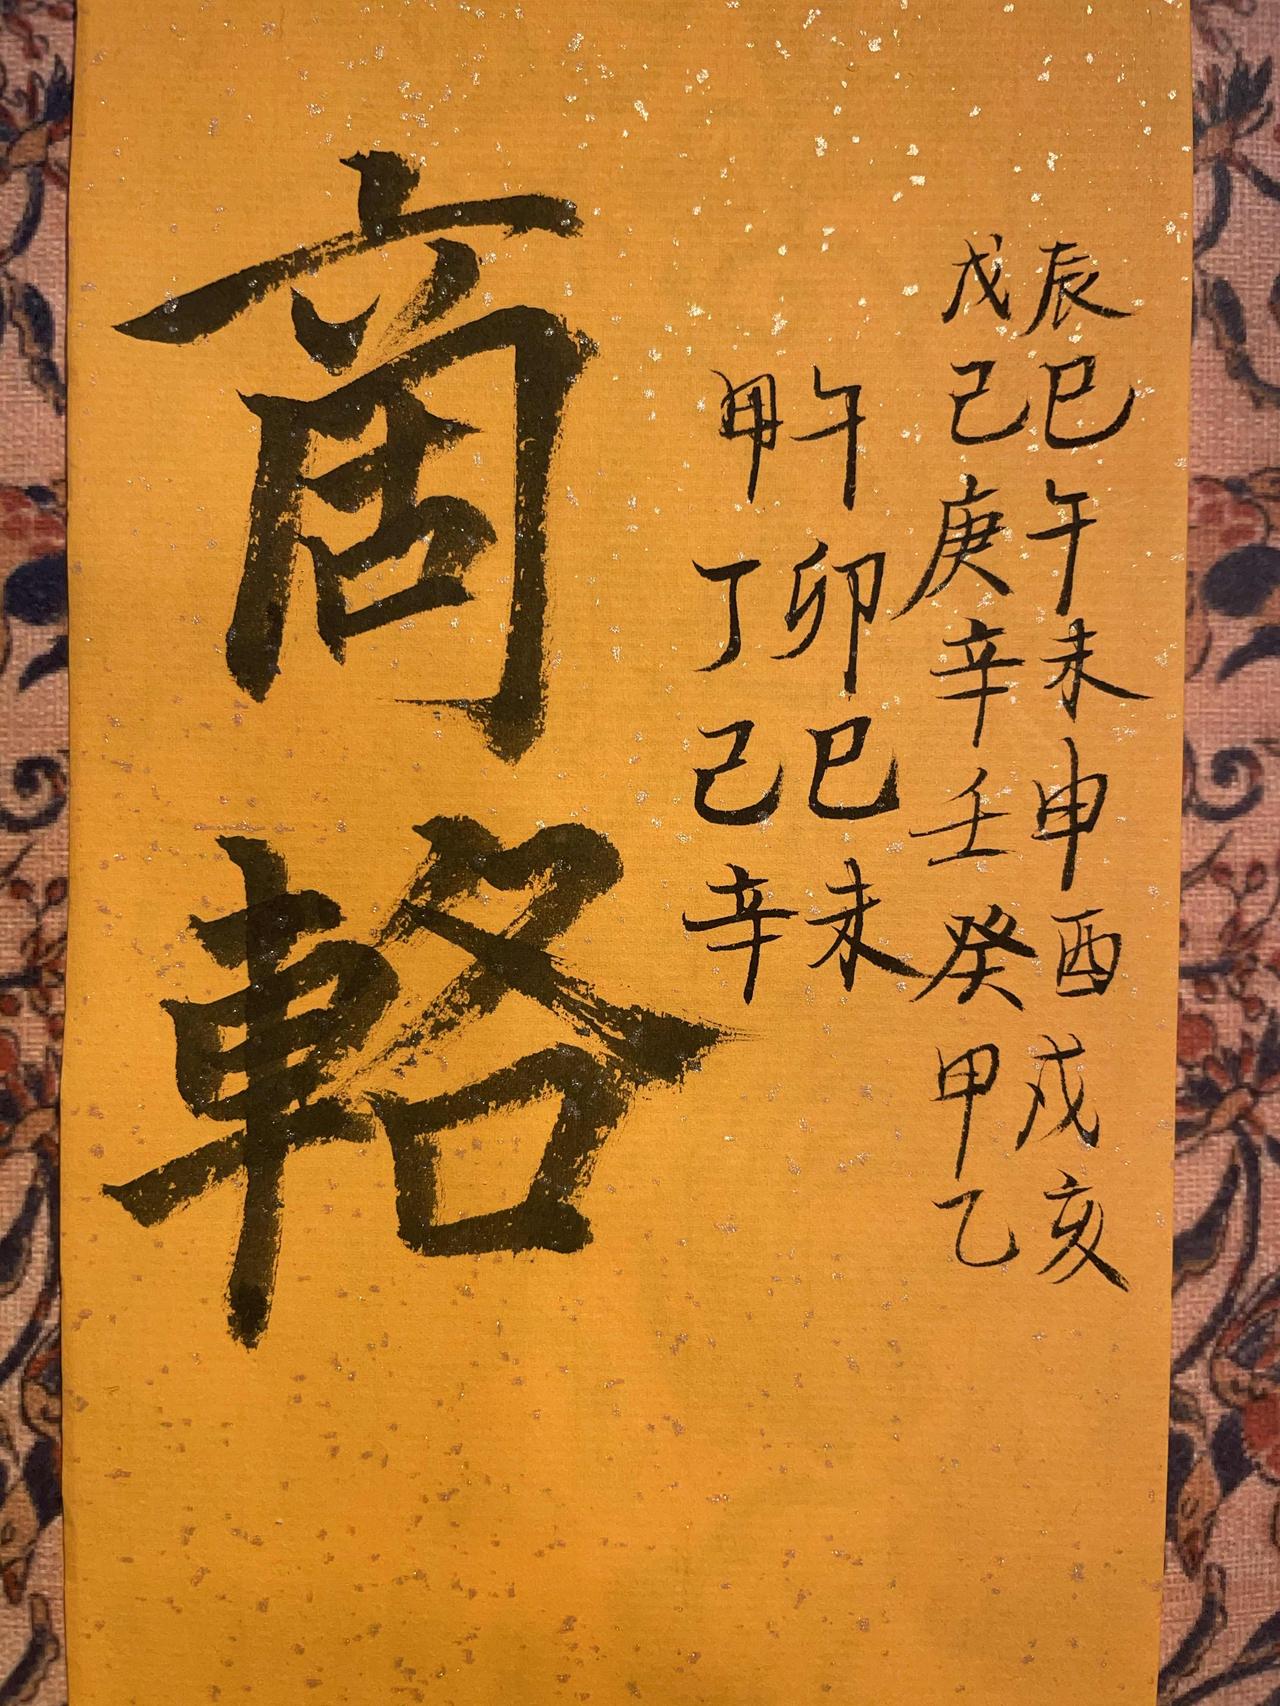 辰巳午未申酉戌亥
戊己庚辛壬癸甲乙
午卯巳未
甲丁己辛
商輅